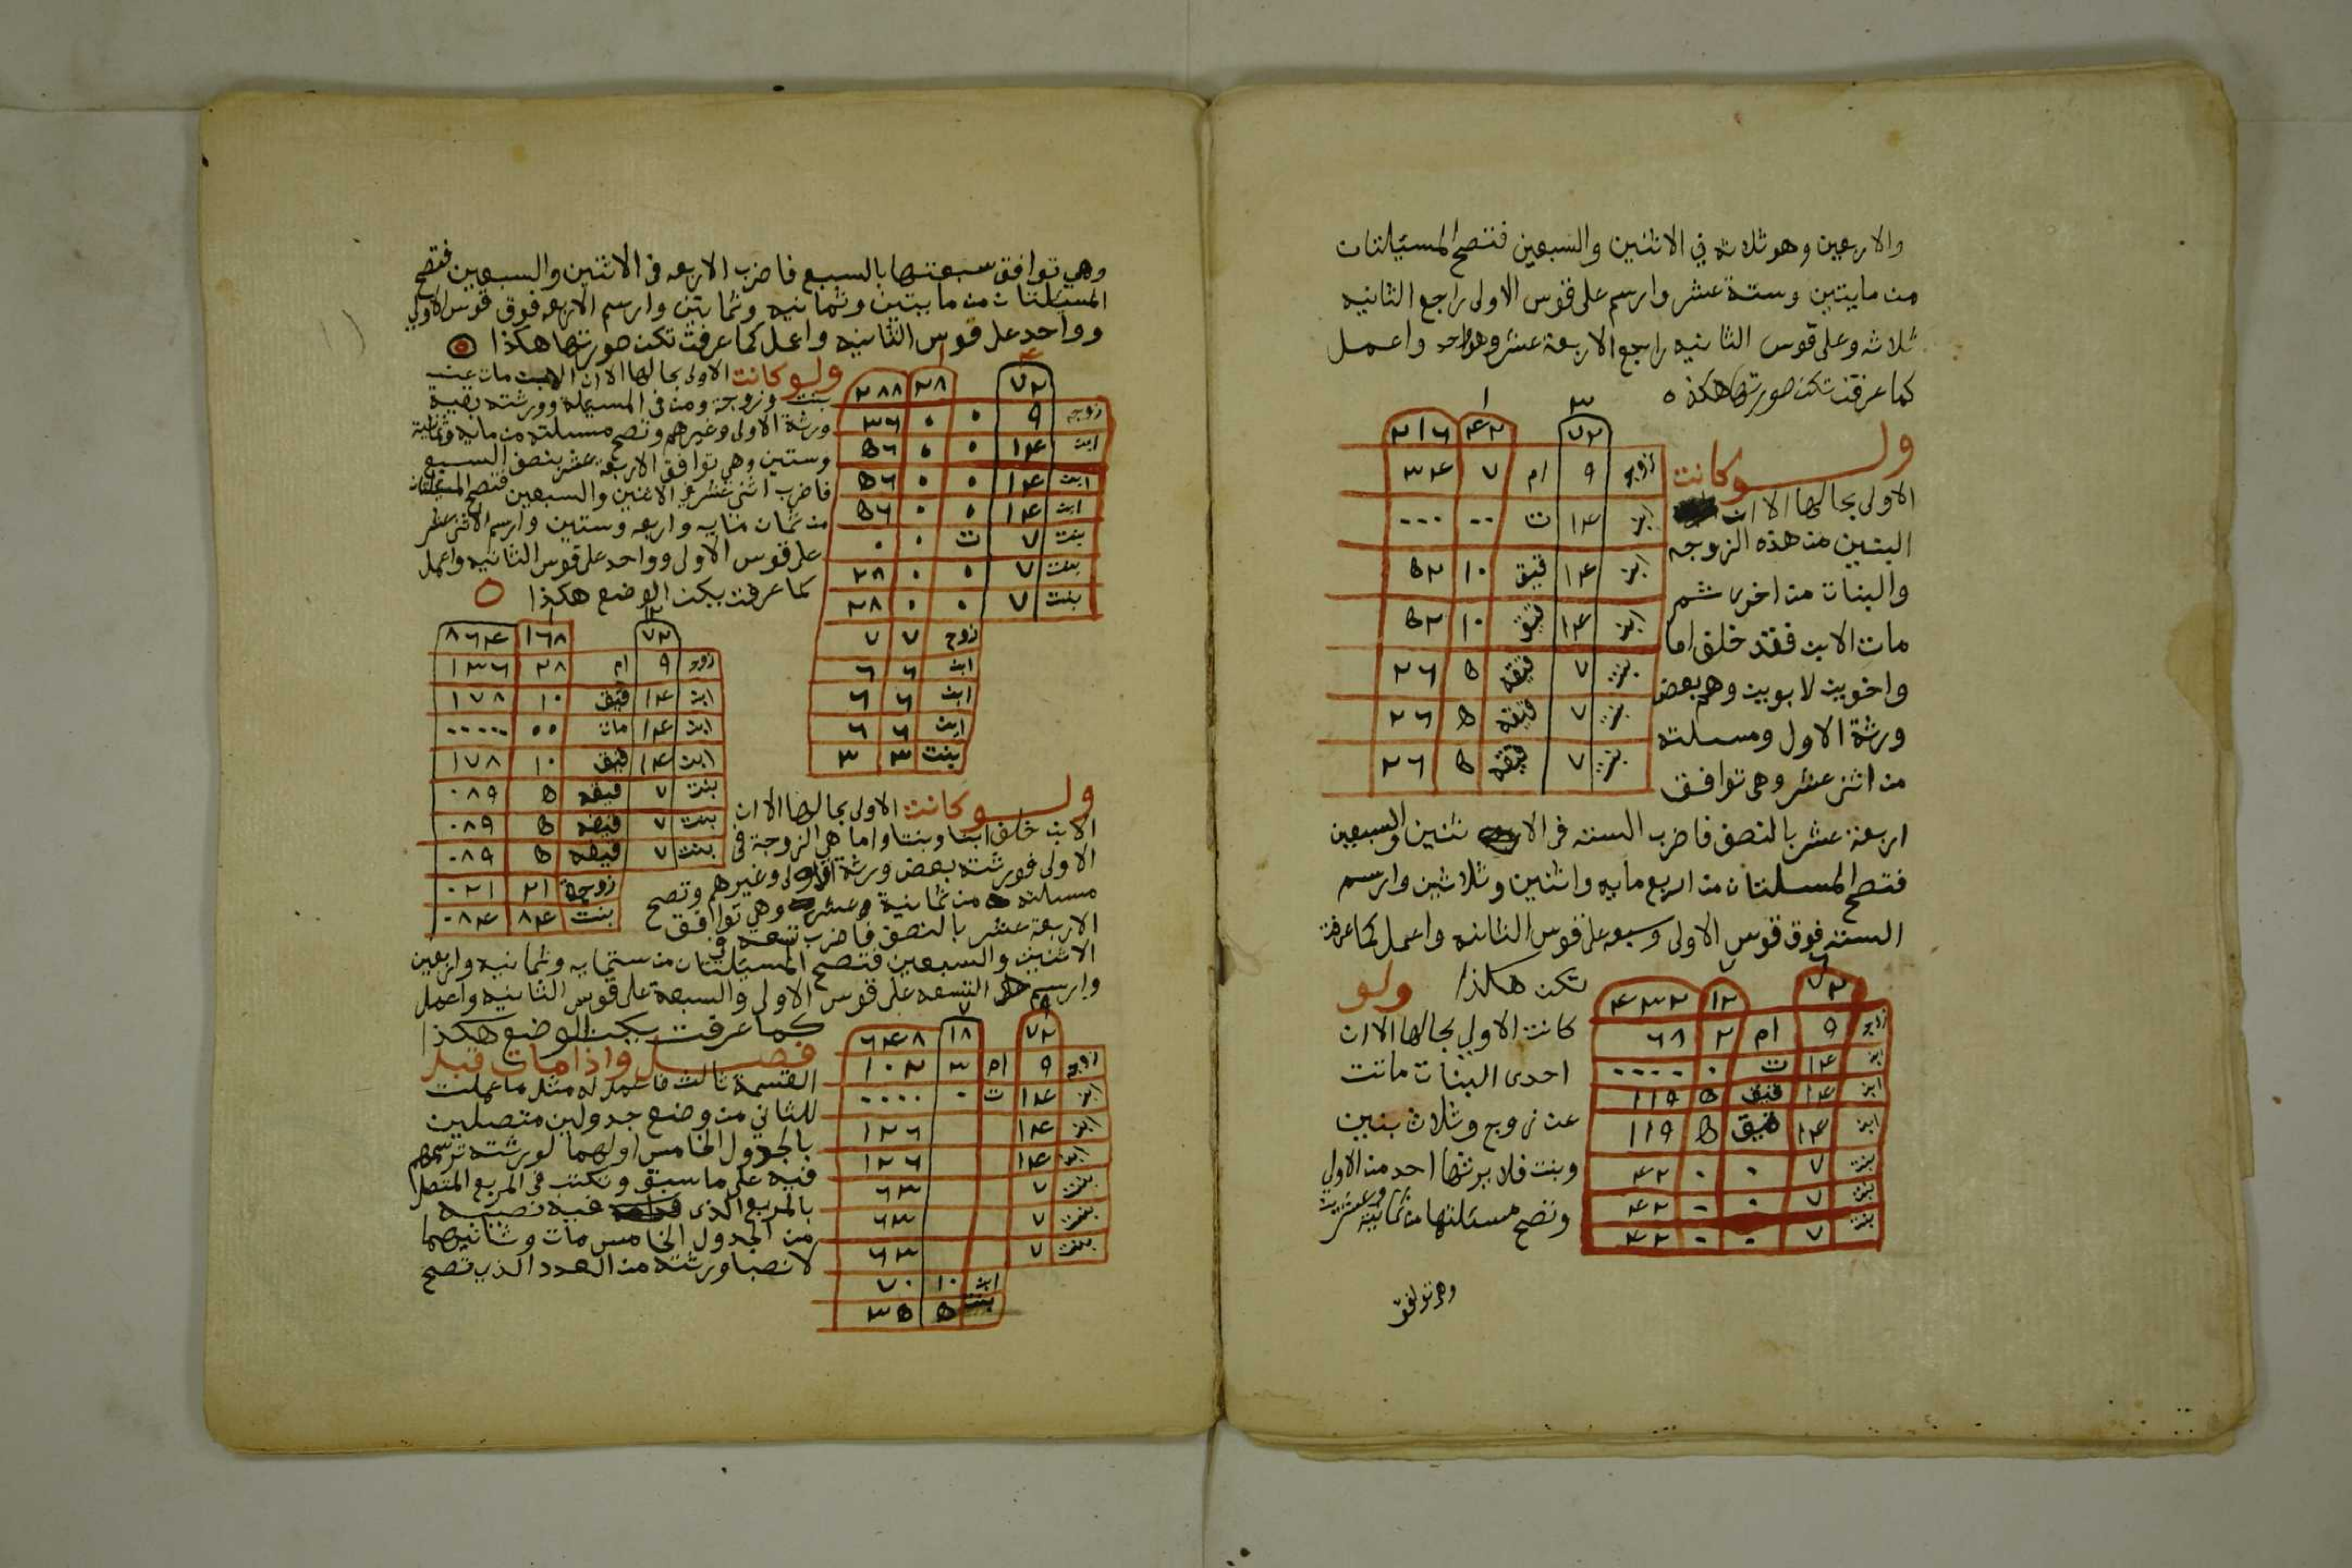 والاربعين وهو ثلاثة في الاثنين والسبعين فتصح المسئلتان
من مايتين وستة عشر وارسم على قوس الاولى راجع الثانيه
ثلاثه وعلى قوس الثانيه راجع الاربعة عشر وهو واحد واعمل
كما عرفت تكن صورتها هكذا ه
٣ ١
٧٢ ٤٢ ٢١٦
زوجه ٩ ام ٧ ٣٤
ابن ١٤ ت ٠٠ ٠٠٠
ابن ١٤ قيق ١٠ ٥٢
ابن ١٤ قيق ١٠ ٥٢
بنت ٧ قيقه ٥ ٢٦
بنت ٧ قيقه ٥ ٢٦
بنت ٧ قيقه ٥ ٢٦
ولو كانت
الاولى بحالها الا ان
البنين من هذه الزوجه
والبنات من اخرى ثم
مات الابن فقد خلف اما
واخوين لابوين وهم بعض
ورثة الاول ومسئلته
من اثنى عشر وهي توافق
اربعة عشر بالنصف فاضرب الستة في الاثنين والسبعين
فتصح المسئلتان من اربع مايه واثنين وثلاثين وارسم
الستة فوق قوس الاولى وسبعه على قوس الثانيه واعمل كما عرفت
تكن هكذا ولو
٦ ٧
٧٢ ١٢ ٤٣٢
زوجه ٩ ام ٢ ٦٨
ابن ١٤ ت ٠ ٠٠٠٠
ابن ١٤ قيق ٥ ١١٩
ابن ١٤ قيق ٥ ١١٩
بنت ٧ ٠ ٠ ٤٢
بنت ٧ ٠ ٠ ٤٢
بنت ٧ ٠ ٠ ٤٢
كانت الاولى بحالها الا ان
احدى البنات ماتت
عن زوج وثلاث بنين
وبنت فلا يرثها احد من الاولى
وتصح مسئلتها من ثمانية وعشرين
وهي توافق
وهي توافق سبعتها بالسبع فاضرب الاربعه في الاثنين والسبعين فتصح
المسئلتان من مايتين وثمانيه وثمانين وارسم الاربعه فوق قوس الاولى
وواحد على قوس الثانيه واعمل كما عرفت تكن صورتها هكذا ه
٤ ١
٧٢ ٢٨ ٢٨٨
زوجه ٩ ٠ ٠ ٣٦
ابن ١٤ ٠ ٠ ٥٦
ابن ١٤ ٠ ٠ ٥٦
ابن ١٤ ٠ ٠ ٥٦
بنت ٧ ت ٠ ٠
بنت ٧ ٠ ٠ ٢٨
بنت ٧ ٠ ٠ ٢٨
زوج ٧ ٧
ابن ٦ ٦
ابن ٦ ٦
ابن ٦ ٦
بنت ٣ ٣
ولو كانت الاولى بحالها الا ان الابن مات عن
بنت وزوجة ومن في المسئلة وورثته بقية
ورثة الاولى وغيرهم وتصح مسئلته من مايه وثمانية
وستين وهي توافق الاربعة عشر بنصف السبع
فاضرب اثني عشر في الاثنين والسبعين فتصح المسئلتان
من ثمان مايه واربعه وستين وارسم الاثنى عشر
على قوس الاولى وواحد على قوس الثانيه واعمل
كما عرفت يكن الوضع هكذا ه
١٢ ١
٧٢ ١٦٨ ٨٦٤
زوجه ٩ ام ٢٨ ١٣٦
ابن ١٤ قيق ١٠ ١٧٨
ابن ١٤ مات ٠٠ ٠٠٠٠٠
ابن ١٤ قيق ١٠ ١٧٨
بنت ٧ قيقه ٥ ٠٨٩
بنت ٧ قيقه ٥ ٠٨٩
بنت ٧ قيقه ٥ ٠٨٩
زوجة ٢١ ٠٢١
بنت ٨٤ ٠٨٤
ولو كانت الاولى بحالها الا ان
الابن خلف ابنا وبنتا واما هي الزوجة في
الاولى فورثته بعض ورثة الاولى وغيرهم وتصح
مسئلته من ثمانية عشر وهي توافق
الاربعة عشر بالنصف فاضرب تسعه في
الاثنين والسبعين فتصح المسئلتان من ستمايه وثمانيه واربعين
وارسم التسعه على قوس الاولى والسبعة على قوس الثانيه واعمل
كما عرفت يكن الوضع هكذا
٩ ٧
٧٢ ١٨ ٦٤٨
زوجه ٩ ام ٣ ١٠٢
ابن ١٤ ت ٠ ٠٠٠٠
ابن ١٤ ١٢٦
ابن ١٤ ١٢٦
بنت ٧ ٦٣
بنت ٧ ٦٣
بنت ٧ ٦٣
ابن ١٠ ٧٠
بنت ٥ ٣٥
فصل واذا مات قبل
القسمة ثالث فاعمل له مثل ما عملت
للثاني من وضع جدولين متصلين
بالجدول الخامس اولهما لورثته ترسمهم
فيه على ما سبق وتكتب في المربع المتصل
بالمربع الذي فيه نصيبه
من الجدول الخامس مات وثانيهما
لانصبا ورثته من العدد الذي تصح